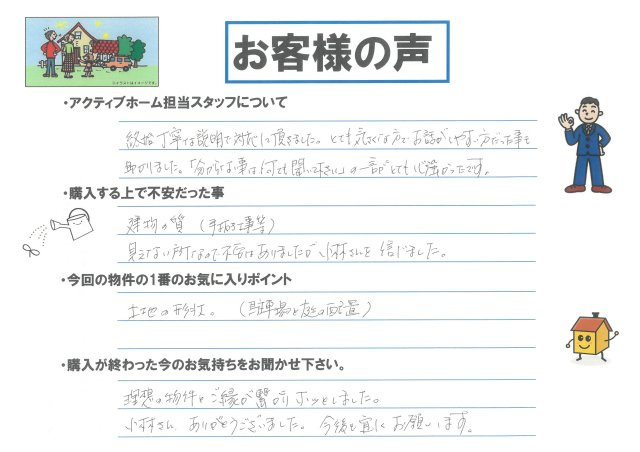 お客様の声
※イラストはイメージです。
・アクティブホーム担当スタッフについて
終始丁寧な説明で対応して頂きました。とても気さくな方でお話がしやすい方だった事も
助かりました。「分からない事は何でも聞いて下さい」の一言がとても心強かったです。
・購入する上で不安だった事
建物の質（手抜き工事等）
見えない所なので不安はありましたが小林さんを信じました。
・今回の物件の1番のお気に入りポイント
土地の形状。（駐車場と庭の配置）
・購入が終わった今のお気持ちをお聞かせ下さい。
理想の物件とご縁が繋がりホッとしました。
小林さん ありがとうございました。今後も宜しくお願いします。